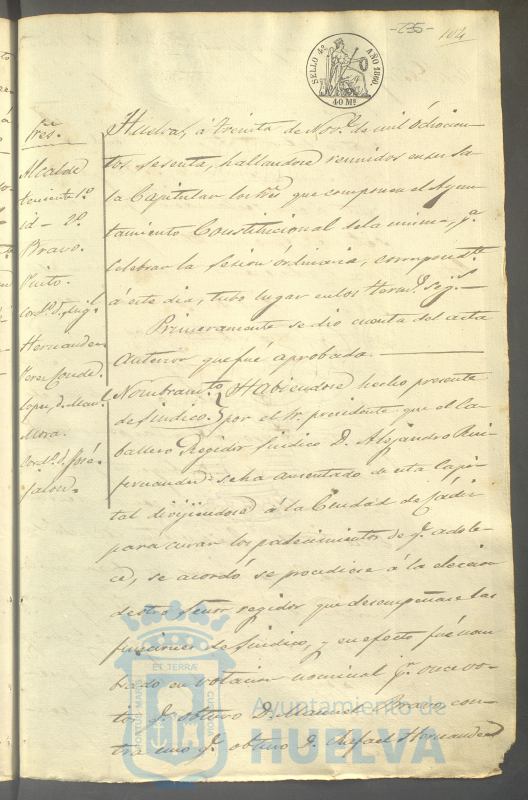 -235- 104
SELLO 4º AÑO 1860.
40 Ms
Sres.
Alcalde
teniente 1º
id - 2º
Bravo.
Pinto.
Cord.ª D. Ang.l
Hernandez
Perez Conde.
Lopez, D. Man.l
Mora.
Cord.ª D. José
Jalon.
Huelva, á treinta de Nov.e de mil ochocien-
tos sesenta, hallandose reunidos en su Sa-
la Capitular los Sres que componen el Ayun-
tamiento Constitucional de la misma, p.a
celebrar la sesion ordinaria, correspond.te
á este dia, tubo lugar en los term.s sig.s
Primeramente se dio cuenta del acta
anterior que fué aprobada.
Nombram.to de Sindico.
Habiendose hecho presente
por el Sr. presidente que el Ca-
ballero Regidor Sindico D. Alejandro Rui-
fernandez se ha ausentado de esta Capi-
tal dirijiendose á la Ciudad de Cádiz
para curar los padecimientos de q.e adole-
ce, se acordó se procediese á la eleccion
de otro Señor regidor que desempeñase las
funciones de Sindico, y en efecto fué nom-
brado en votacion nominal p.r once vo-
tos q.e obtuvo D. Manuel Bravo con-
tra uno q.e obtuvo D. Rafael Hernandez
PORTUS MARIS ET TERRÆ CUSTODIA
Ayuntamiento de
HUELVA